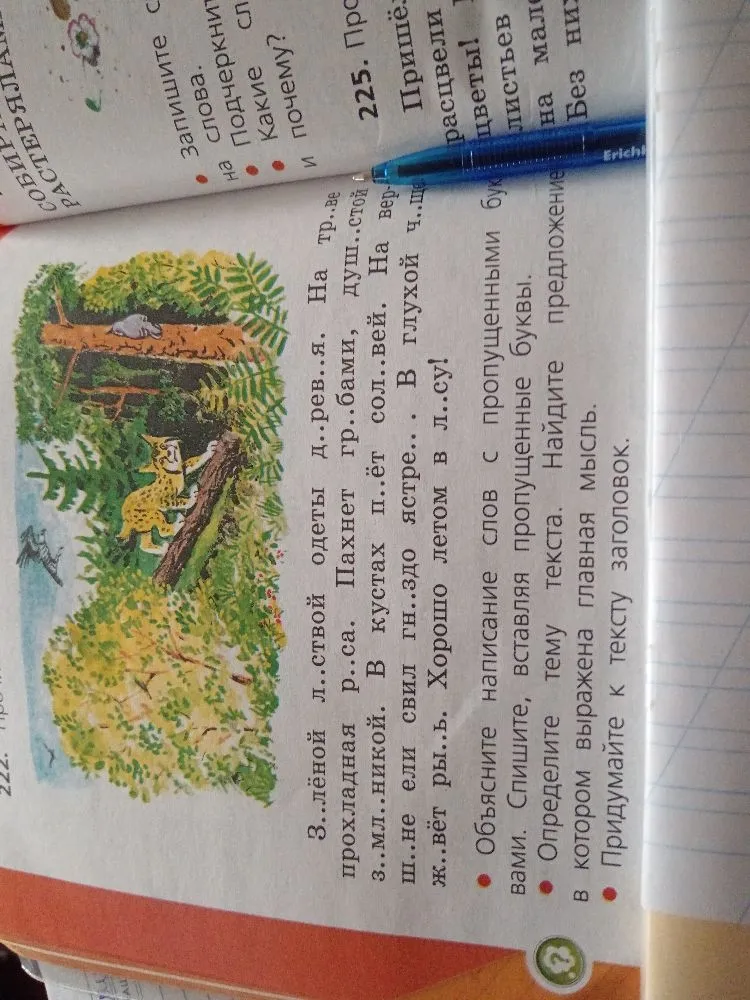 СОБИР
РАСТЕРЯЛА
Запишите с
на слова.
Подчеркнит
Какие сл
и почему?
225. Про
Пришёл
расцвели
цветы!
листьев
на мале
Без них
Erich
222.
З..лёной л..ствой одеты д..рев..я. На тр..ве
прохладная р..са. Пахнет гр..бами, душ..стой
з..мл..никой. В кустах п..ёт сол..вей. На вер-
ш..не ели свил гн..здо ястре.. . В глухой ч..ще
ж..вёт ры..ь. Хорошо летом в л..су!
• Объясните написание слов с пропущенными бук
вами. Спишите, вставляя пропущенные буквы.
• Определите тему текста. Найдите предложение
в котором выражена главная мысль.
• Придумайте к тексту заголовок.
?